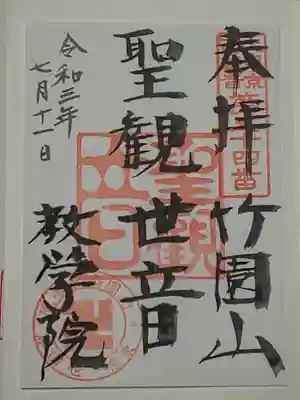 奉拝 竹園山
聖観世音
教学院
令和三年
七月十一日